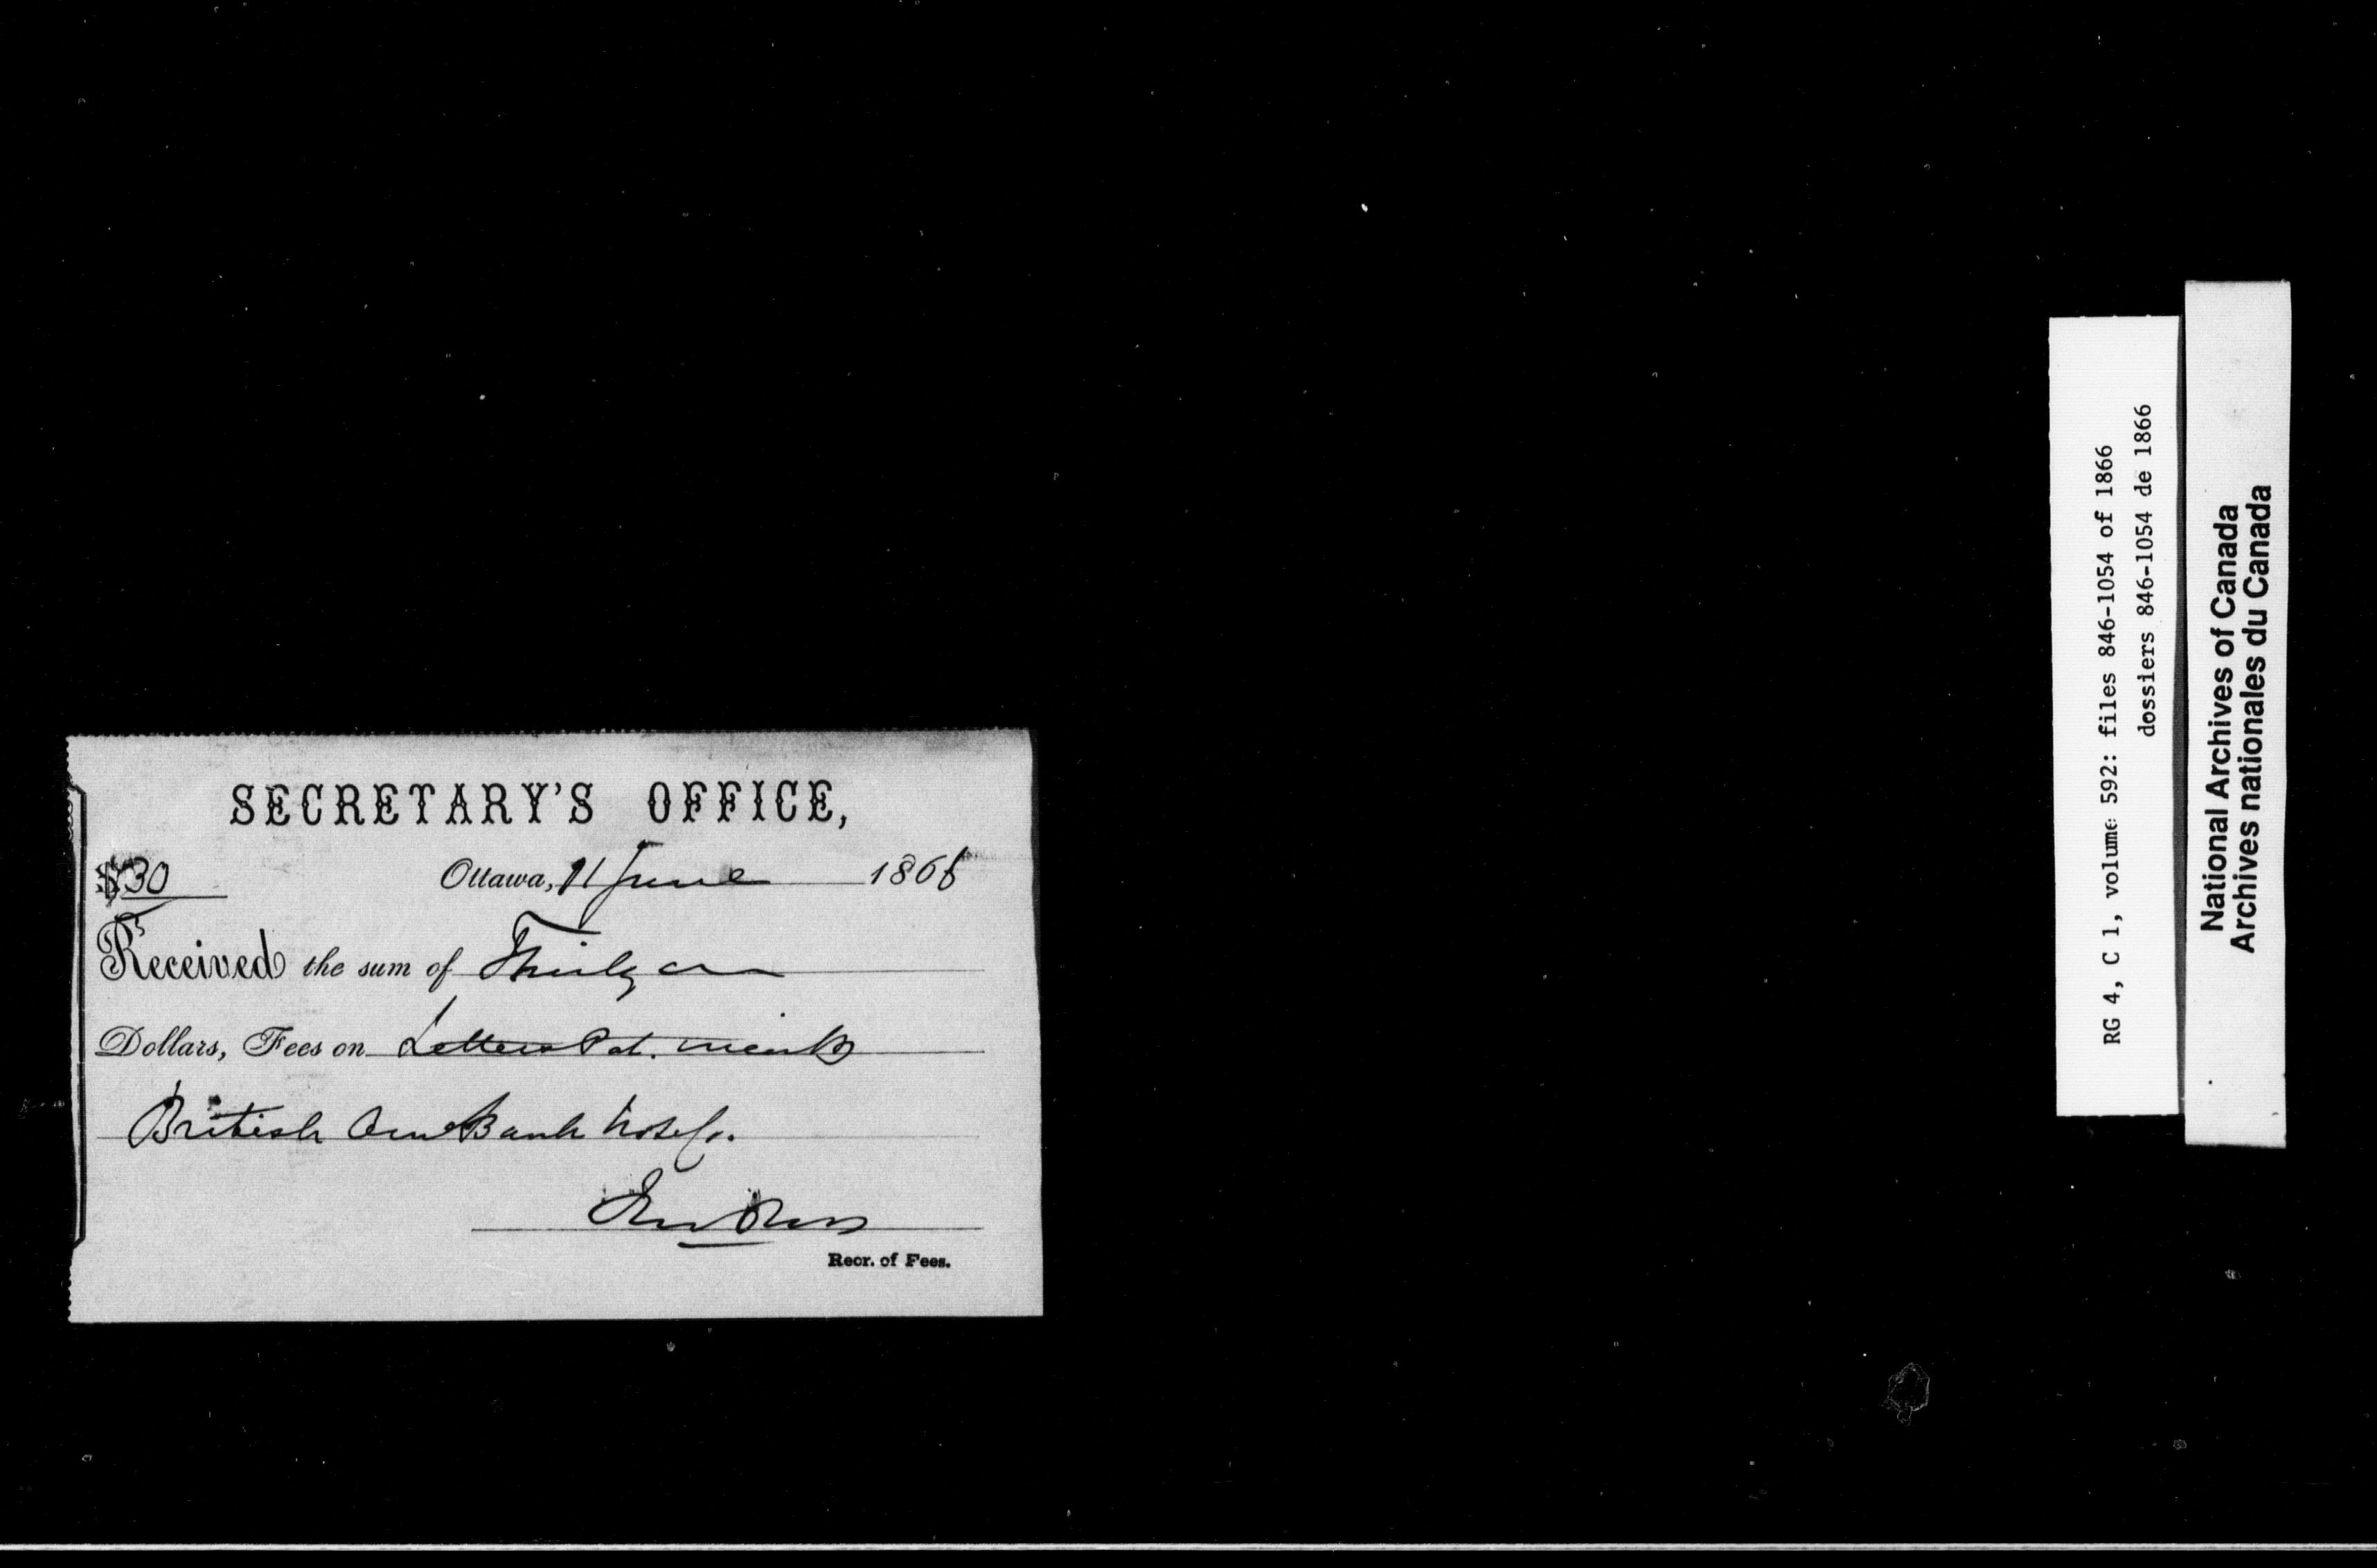 SECRETARY'S OFFICE,
$30 Ottawa, 11 June 1866
Received the sum of Thirty
Dollars, Fees on Letters Pat.
British Amn Bank Note Co.
Recr. of Fees.
RG 4, C 1, volume 592: files 846-1054 of 1866
dossiers 846-1054 de 1866
National Archives of Canada
Archives nationales du Canada